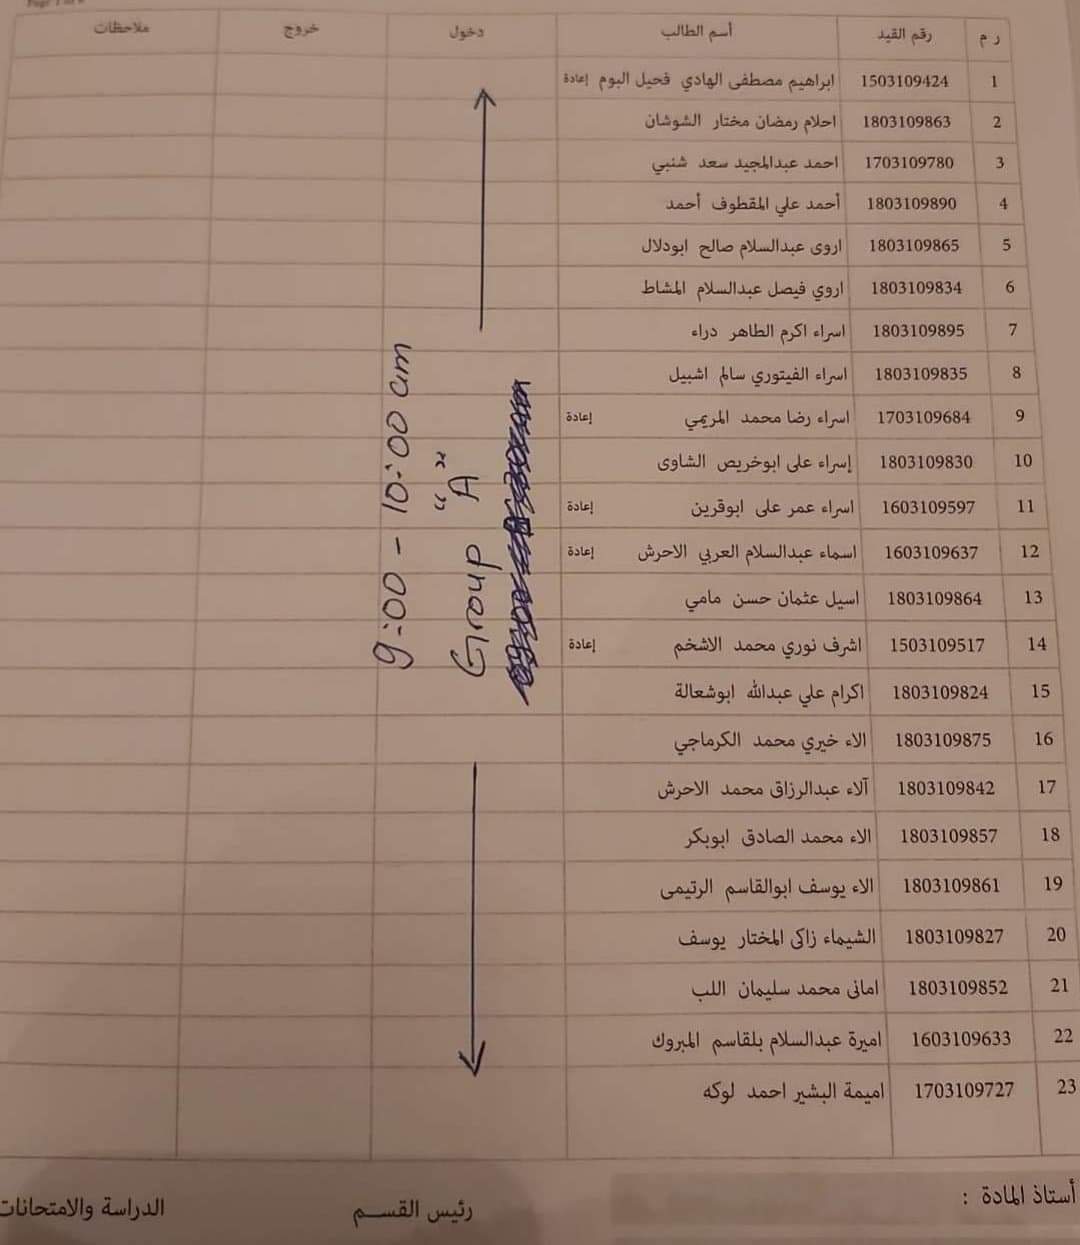 ر م رقم القيد أسم الطالب دخول خروج ملاحظات
1 1503109424 ابراهيم مصطفى الهادي فحيل البوم إعادة
2 1803109863 احلام رمضان مختار الشوشان
3 1703109780 احمد عبدالمجيد سعد شنبي
4 1803109890 أحمد علي المقطوف أحمد
5 1803109865 اروى عبدالسلام صالح ابودلال
6 1803109834 اروي فيصل عبدالسلام المشاط
7 1803109895 اسراء اكرم الطاهر دراء
8 1803109835 اسراء الفيتوري سالم اشبيل
9 1703109684 اسراء رضا محمد المريمي إعادة
10 1803109830 إسراء على ابوخريص الشاوى
11 1603109597 اسراء عمر على ابوقرين إعادة
12 1603109637 اسماء عبدالسلام العربي الاحرش إعادة
13 1803109864 اسيل عثمان حسن مامي
14 1503109517 اشرف نوري محمد الاشخم إعادة
15 1803109824 اكرام علي عبدالله ابوشعالة
16 1803109875 الاء خيري محمد الكرماجي
17 1803109842 آلاء عبدالرزاق محمد الاحرش
18 1803109857 الاء محمد الصادق ابوبكر
19 1803109861 الاء يوسف ابوالقاسم الرتيمى
20 1803109827 الشيماء زاكى المختار يوسف
21 1803109852 امانى محمد سليمان اللب
22 1603109633 اميرة عبدالسلام بلقاسم المبروك
23 1703109727 اميمة البشير احمد لوكه
9:00 - 10:00 am
Group "A"
أستاذ المادة :
رئيس القسم
الدراسة والامتحانات